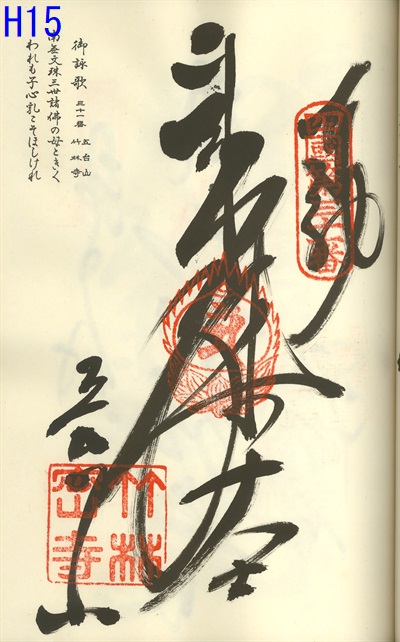 H15
奉納
五台山
竹林密寺
御詠歌 三十一番 五台山 竹林寺
南無文珠三世諸佛の母ときく
われも子心乳こそほしけれ